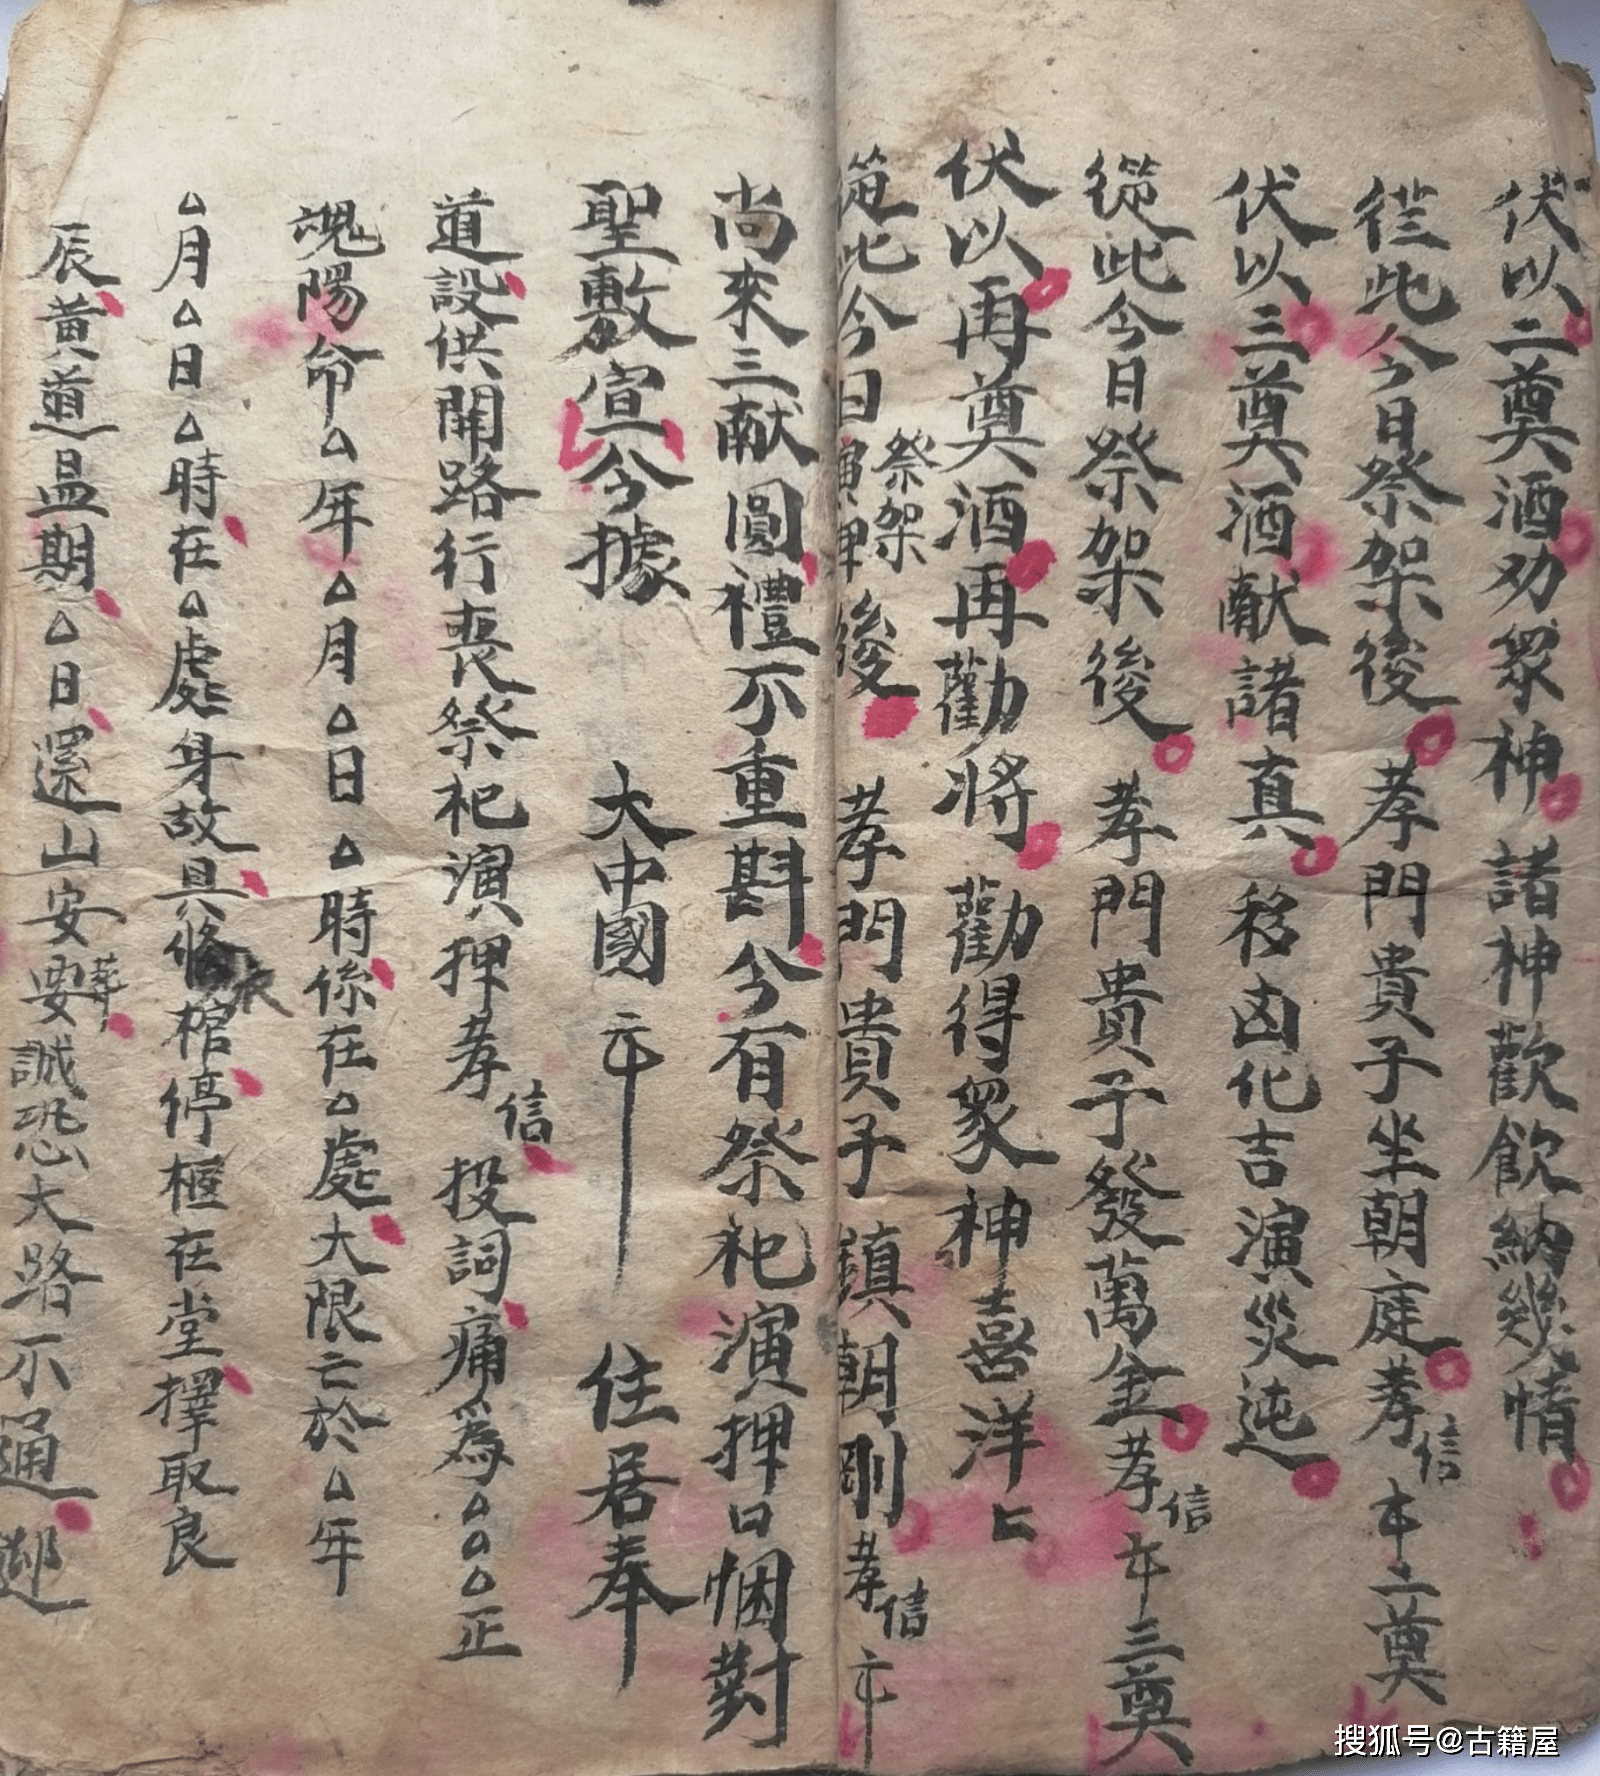 伏以二奠酒劝眾神諸神歡飲納幾情
從此今日祭架後孝門貴子坐朝庭孝信二奠
伏以三奠酒献諸真移凶化吉演災迍
從此今日祭架後孝門貴子發萬金孝信三奠
伏以再奠酒再勸將勸得眾神喜洋
從此今日演押祭架後孝門貴子鎮朝剛孝信
尚來三献圓禮不重斟兮有祭祀演押口悃對
聖敷宣兮據 大中國 住居奉
道設供開路行喪祭祀演押孝信投詞痛為△△△正
魂陽命△年△月△日△時係在△處大限亡於△年
△月△日△時在△處身故具俻衣棺停柩在堂擇取良
辰黃道昷期△日還山安葬要誠恐大路不通
搜狐号@古籍屋